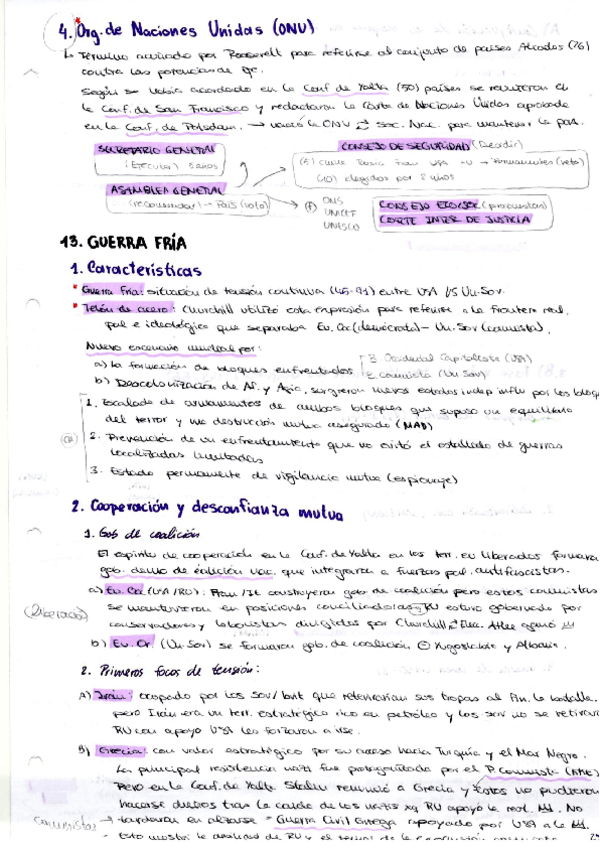 4. Org. de Naciones Unidas (ONU)
Término acuñado por Roosevelt para referirse al conjunto de países Aliados (26)
contra las potencias de eje.
Según se había acordado en la Conf de Yalta (50) países se reunieron en
la Conf. de San Francisco y redactaron la Carta de Naciones Unidas aprobada
en la Conf. de Potsdam. → nació la ONU Soc. Nac. para mantener la paz.
SECRETARIO GENERAL
(Ejecutar) 5 años
CONSEJO DE SEGURIDAD (Decidir)
(5) China Rusia Fran USA → Permanentes (veto)
(10) elegidos por 2 años
ASAMBLEA GENERAL
(recomendar) → País (voto)
OMS
UNICEF
UNESCO
CONSEJO ECO/SOC (propuestas)
CORTE INTER DE JUSTICIA
13. GUERRA FRÍA
1. Características
Guerra Fría: situación de tensión continua (45-91) entre USA VS Un. Sov.
Telón de acero: Churchill utilizó esta expresión para referirse a la frontera real,
pol e ideológica que separaba Eu. Oc (democrática) - Un. Sov (comunista).
Nuevo escenario mundial por:
a) la formación de bloques enfrentados
B. Occidental Capitalista (USA)
B. comunista (Un Sov)
b) Descolonización de Af. y Asia, surgieron nuevos estados indep influ por los bloqu
1. Escalada de armamentos de ambos bloques que supuso un equilibrio
del terror y una destrucción mutua asegurada (MAD)
2. Prevención de un enfrentamiento que no evitó el estallido de guerras
localizadas limitadas
3. Estado permanente de vigilancia mutua (espionaje)
2. Cooperación y desconfianza mutua
1. Gob de coalición
El espíritu de cooperación en la Conf. de Yalta en los terr. eu liberados formaron
gob. demo de coalición nac. que integraron a fuerzas pol. antifascistas.
a) Eu. Oc (USA/RU): Fran / It construyeron gob de coalición pero estos comunistas
se mantuvieron en posiciones conciliadoras RU estuvo gobernado por
conservadores y laboristas dirigidos por Churchill
(liberación)
b) Eu. Or. (Un Sov) se formaron gob. de coalición Yugoslavia y Albania.
2. Primeros focos de tensión:
A) Irán: ocupado por los Sov/brit que retirarían sus tropas al fin. la batalla.
pero Irán era un terr. estratégico rico en petróleo y los sov no se retiraron
RU con apoyo USA les forzaron a irse.
B) Grecia: con valor estratégico por su acceso hacia Turquía y el Mar Negro.
La principal resistencia nazi fue protagonizada por el P. Comunista
Pero en la Conf. de Yalta Stalin renunció a Grecia y estos no pudieron
hacerse dueños tras la caída de los nazis xq RU apoyó la
Comunistas → tardaron en alzarse = Guerra Civil Griega apoyado por USA a la